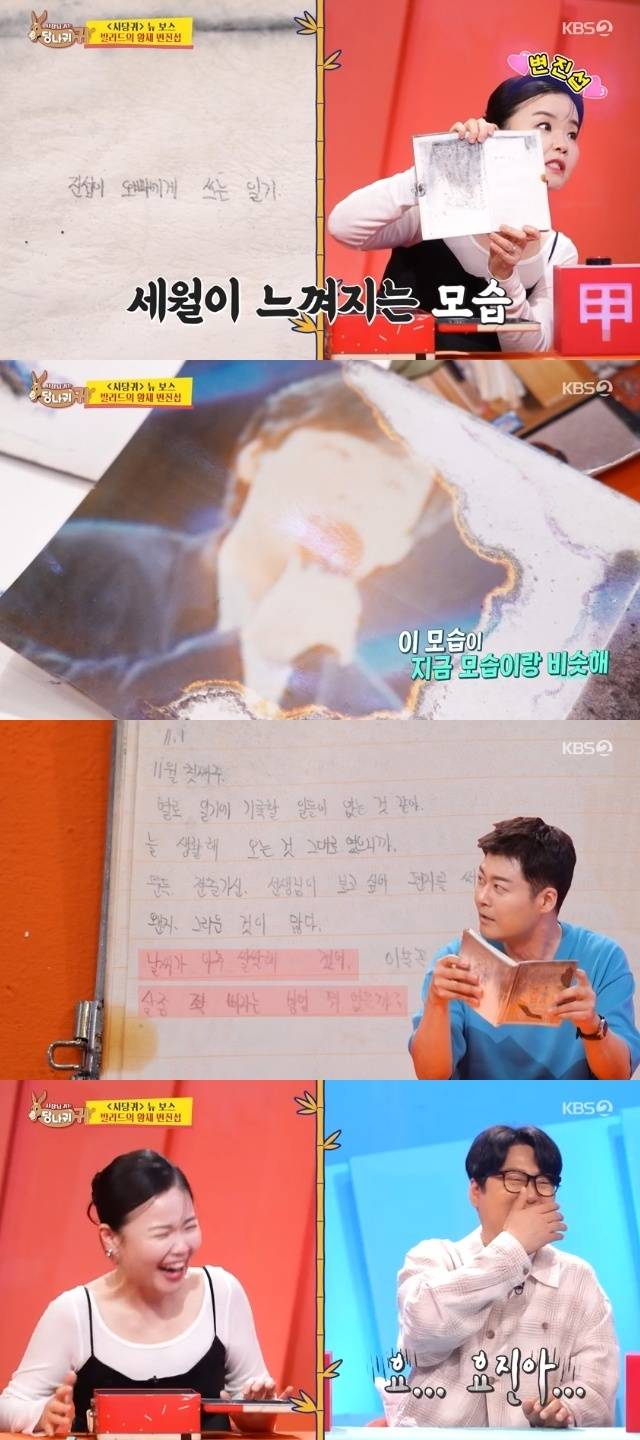 사장님 귀는
당나귀 귀
<사당귀> 뉴 보스
발라드의 황제 변진섭
KBS2
변진섭
진섭이 오빠에게 쓰는 일기
甲
세월이 느껴지는 모습
사장님 귀는
당나귀 귀
<사당귀> 뉴 보스
발라드의 황제 변진섭
KBS2
이 모습이
지금 모습이랑 비슷해
KBS2
11.1
11월 첫째주.
별로 일기에 기록할 일들이 없는 것 같아.
늘 생활해 오는 것 그대로였으니까.
문득, 전출가신 선생님이 보고 싶어 편지를
왠지 그리운 것이 많다.
날씨가 아주 쌀쌀해 졌어.
살좀 쫙 빠지는 방법 뭐 없을까?
사장님 귀는
당나귀 귀
<사당귀> 뉴 보스
발라드의 황제 변진섭
KBS2
효... 효진아...